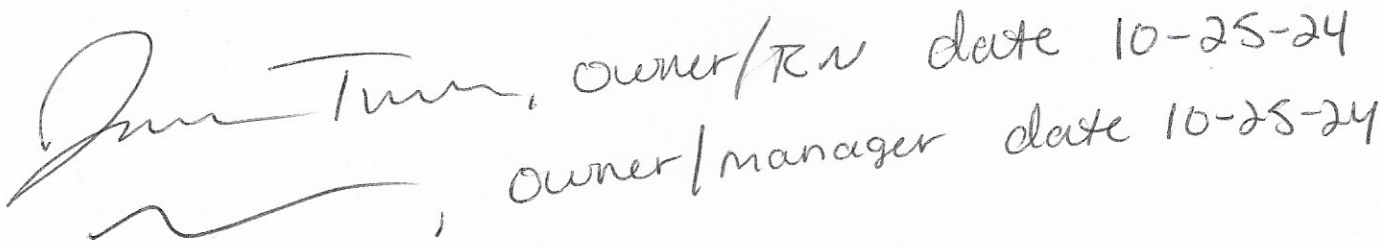 , owner/RN date 10-25-24
, owner/manager date 10-25-24